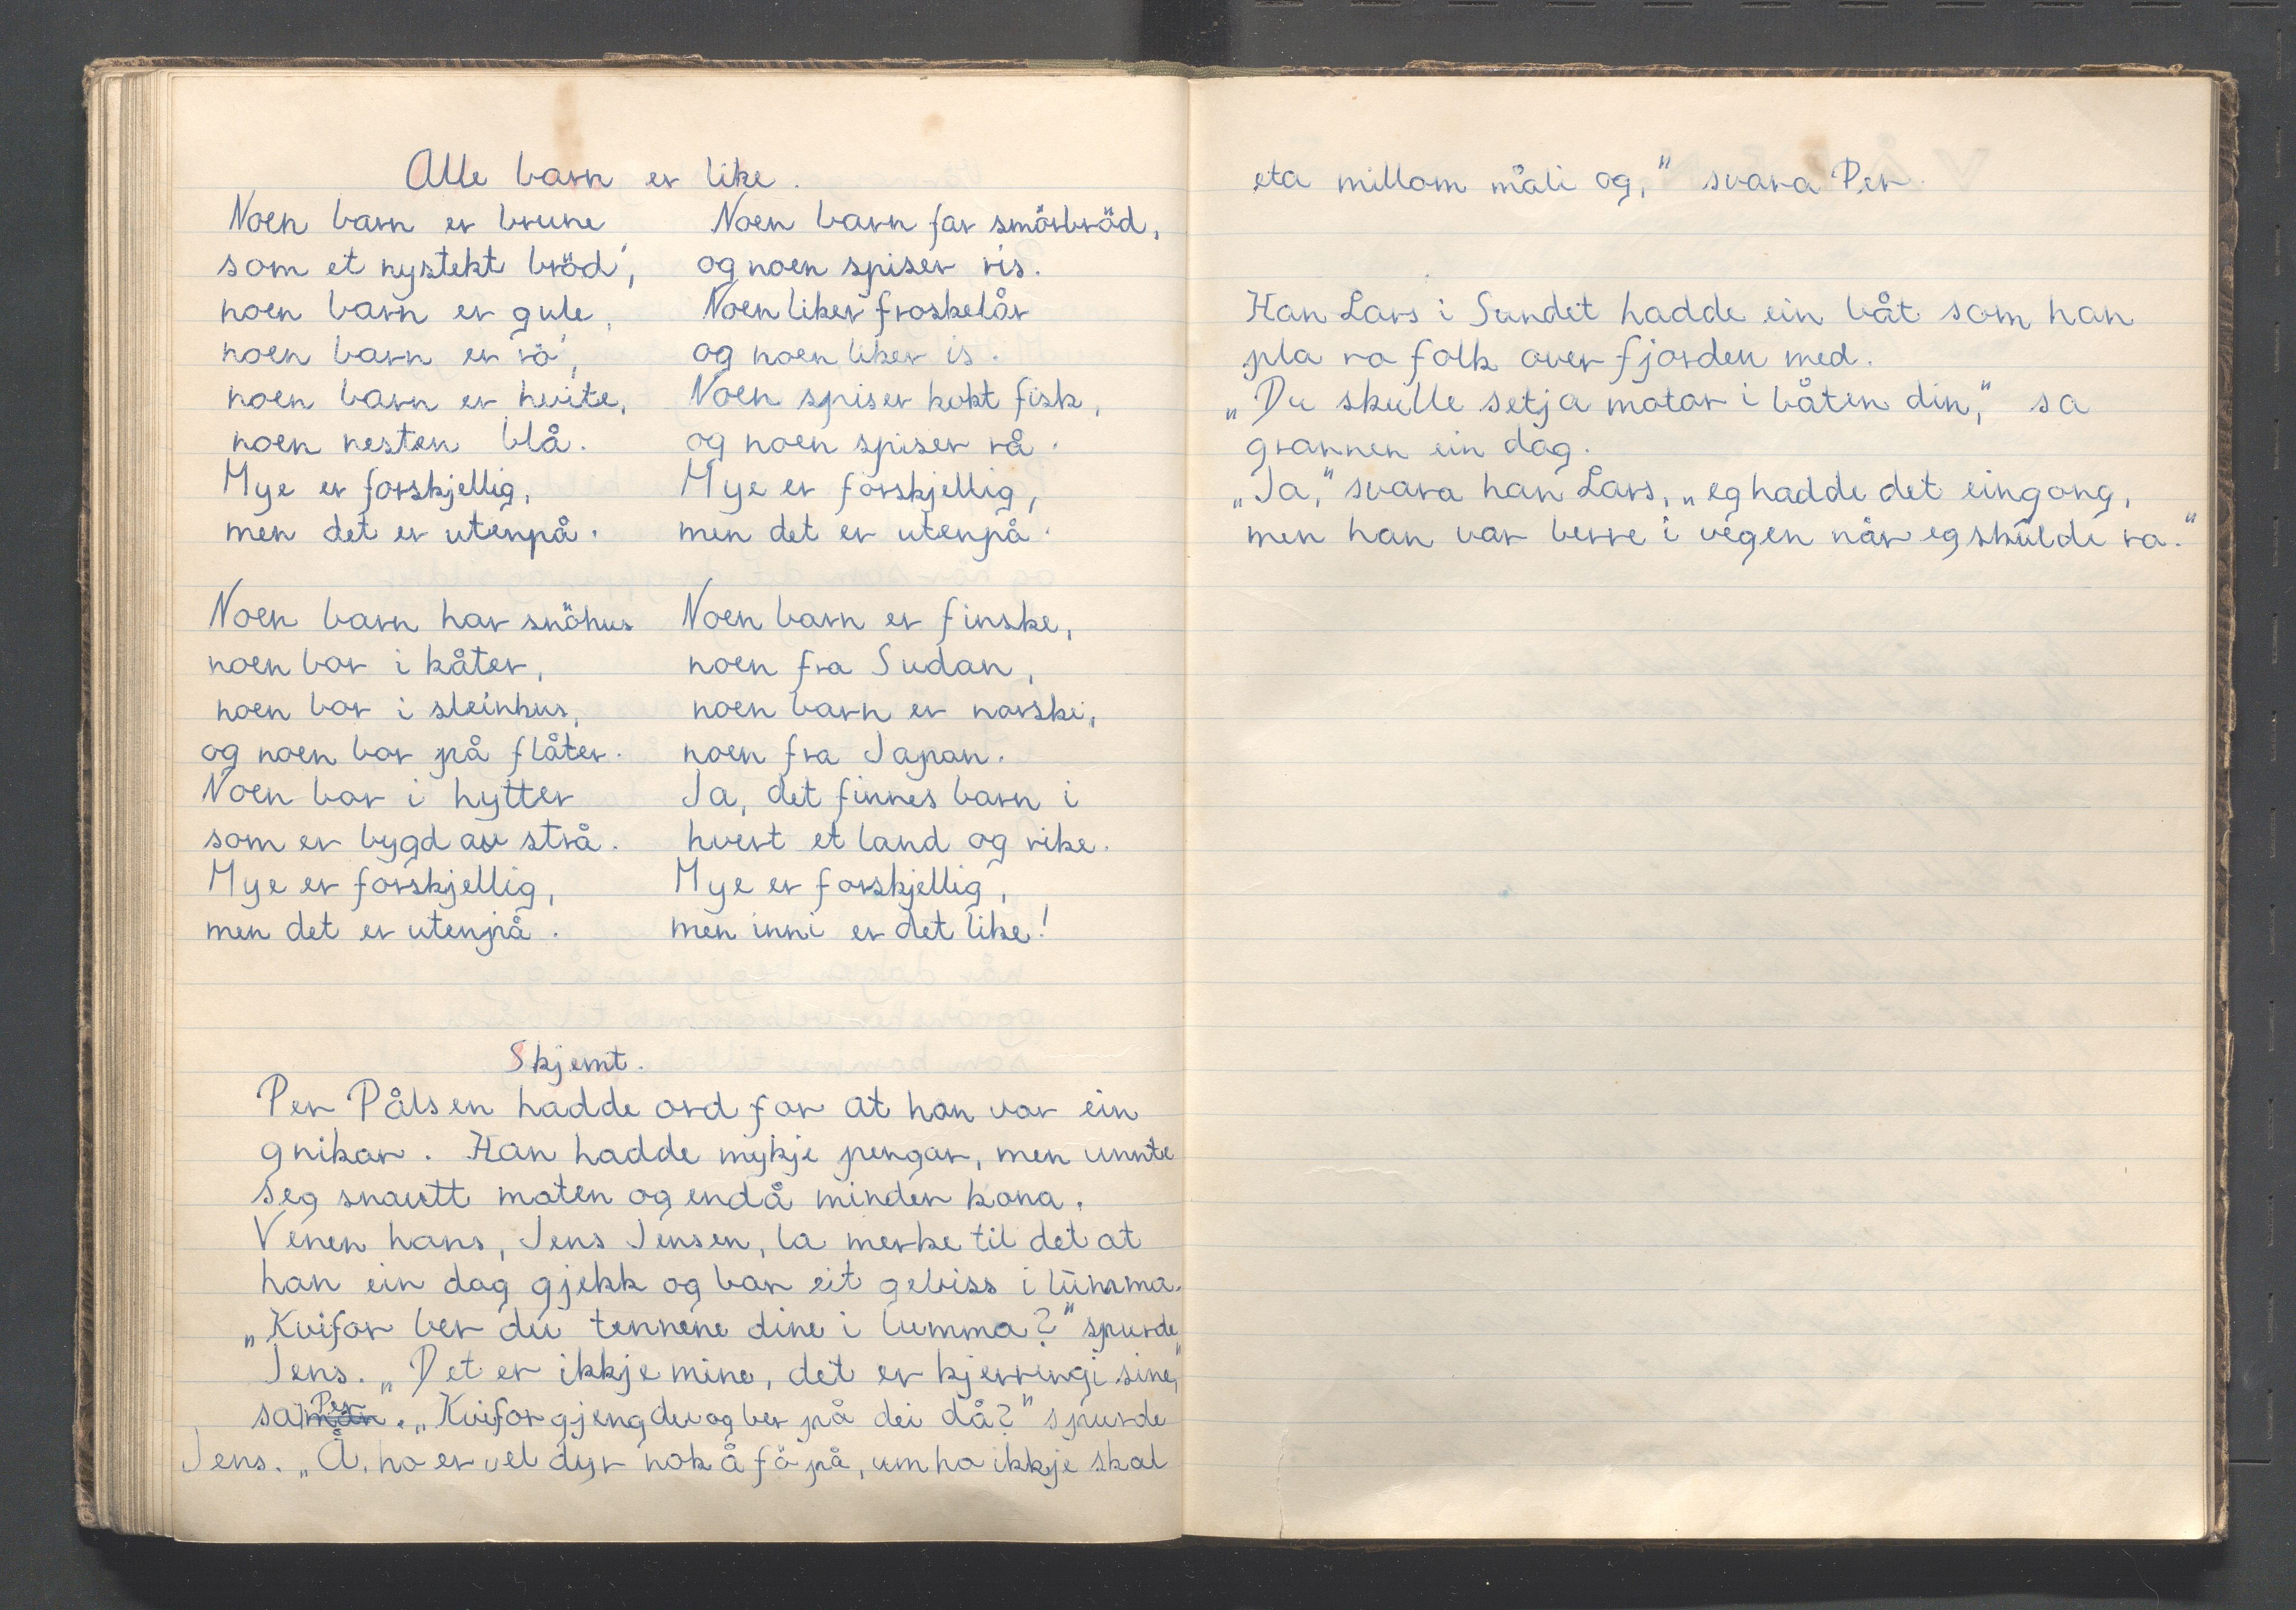 Alle barn er like.
Noen barn er brune
som et nystekt bröd,
noen barn er gule,
noen barn er rö,
noen barn er hvite,
noen nesten blå.
Mye er forskjellig,
men det er utenpå.
Noen barn har snöhus
noen bor i kåter,
noen bor i steinhus,
og noen bor på flåter.
Noen bor i hytter
som er bygd av strå.
Mye er forskjellig,
men det er utenpå.
Noen barn får smörbröd,
og noen spiser ris.
Noen liker froskelår
og noen liker is.
Noen spiser kokt fisk,
og noen spiser rå.
Mye er forskjellig,
men det er utenpå.
Noen barn er finske,
noen fra Sudan,
noen barn er norske,
noen fra Japan.
Ja, det finnes barn i
hvert et land og rike.
Mye er forskjellig,
men inni er det like!
Skjemt.
Per Pålsen hadde ord for at han var ein
gnikar. Han hadde mykje pengar, men unnte
seg snautt maten og endå minder kona.
Venen hans, Jens Jensen, la merke til det at
han ein dag gjekk og bar eit gebiss i lumma.
„Kvifor ber du tennene dine i lumma?" spurde
Jens. „Det er ikkje mine, det er kjerringi sine,"
sa Per. „Kvifor gjeng du og ber på dei då?" spurde
Jens. „Å, ho er vel dyr nok å fö på, um ho ikkje skal
eta millom måli og," svara Per.
Han Lars i Sundet hadde ein båt som han
pla ro folk over fjorden med.
„Du skulle setja motor i båten din," sa
grannen ein dag.
„Ja," svara han Lars, „eg hadde det eingong,
men han var berre i vegen når eg skulde ro."